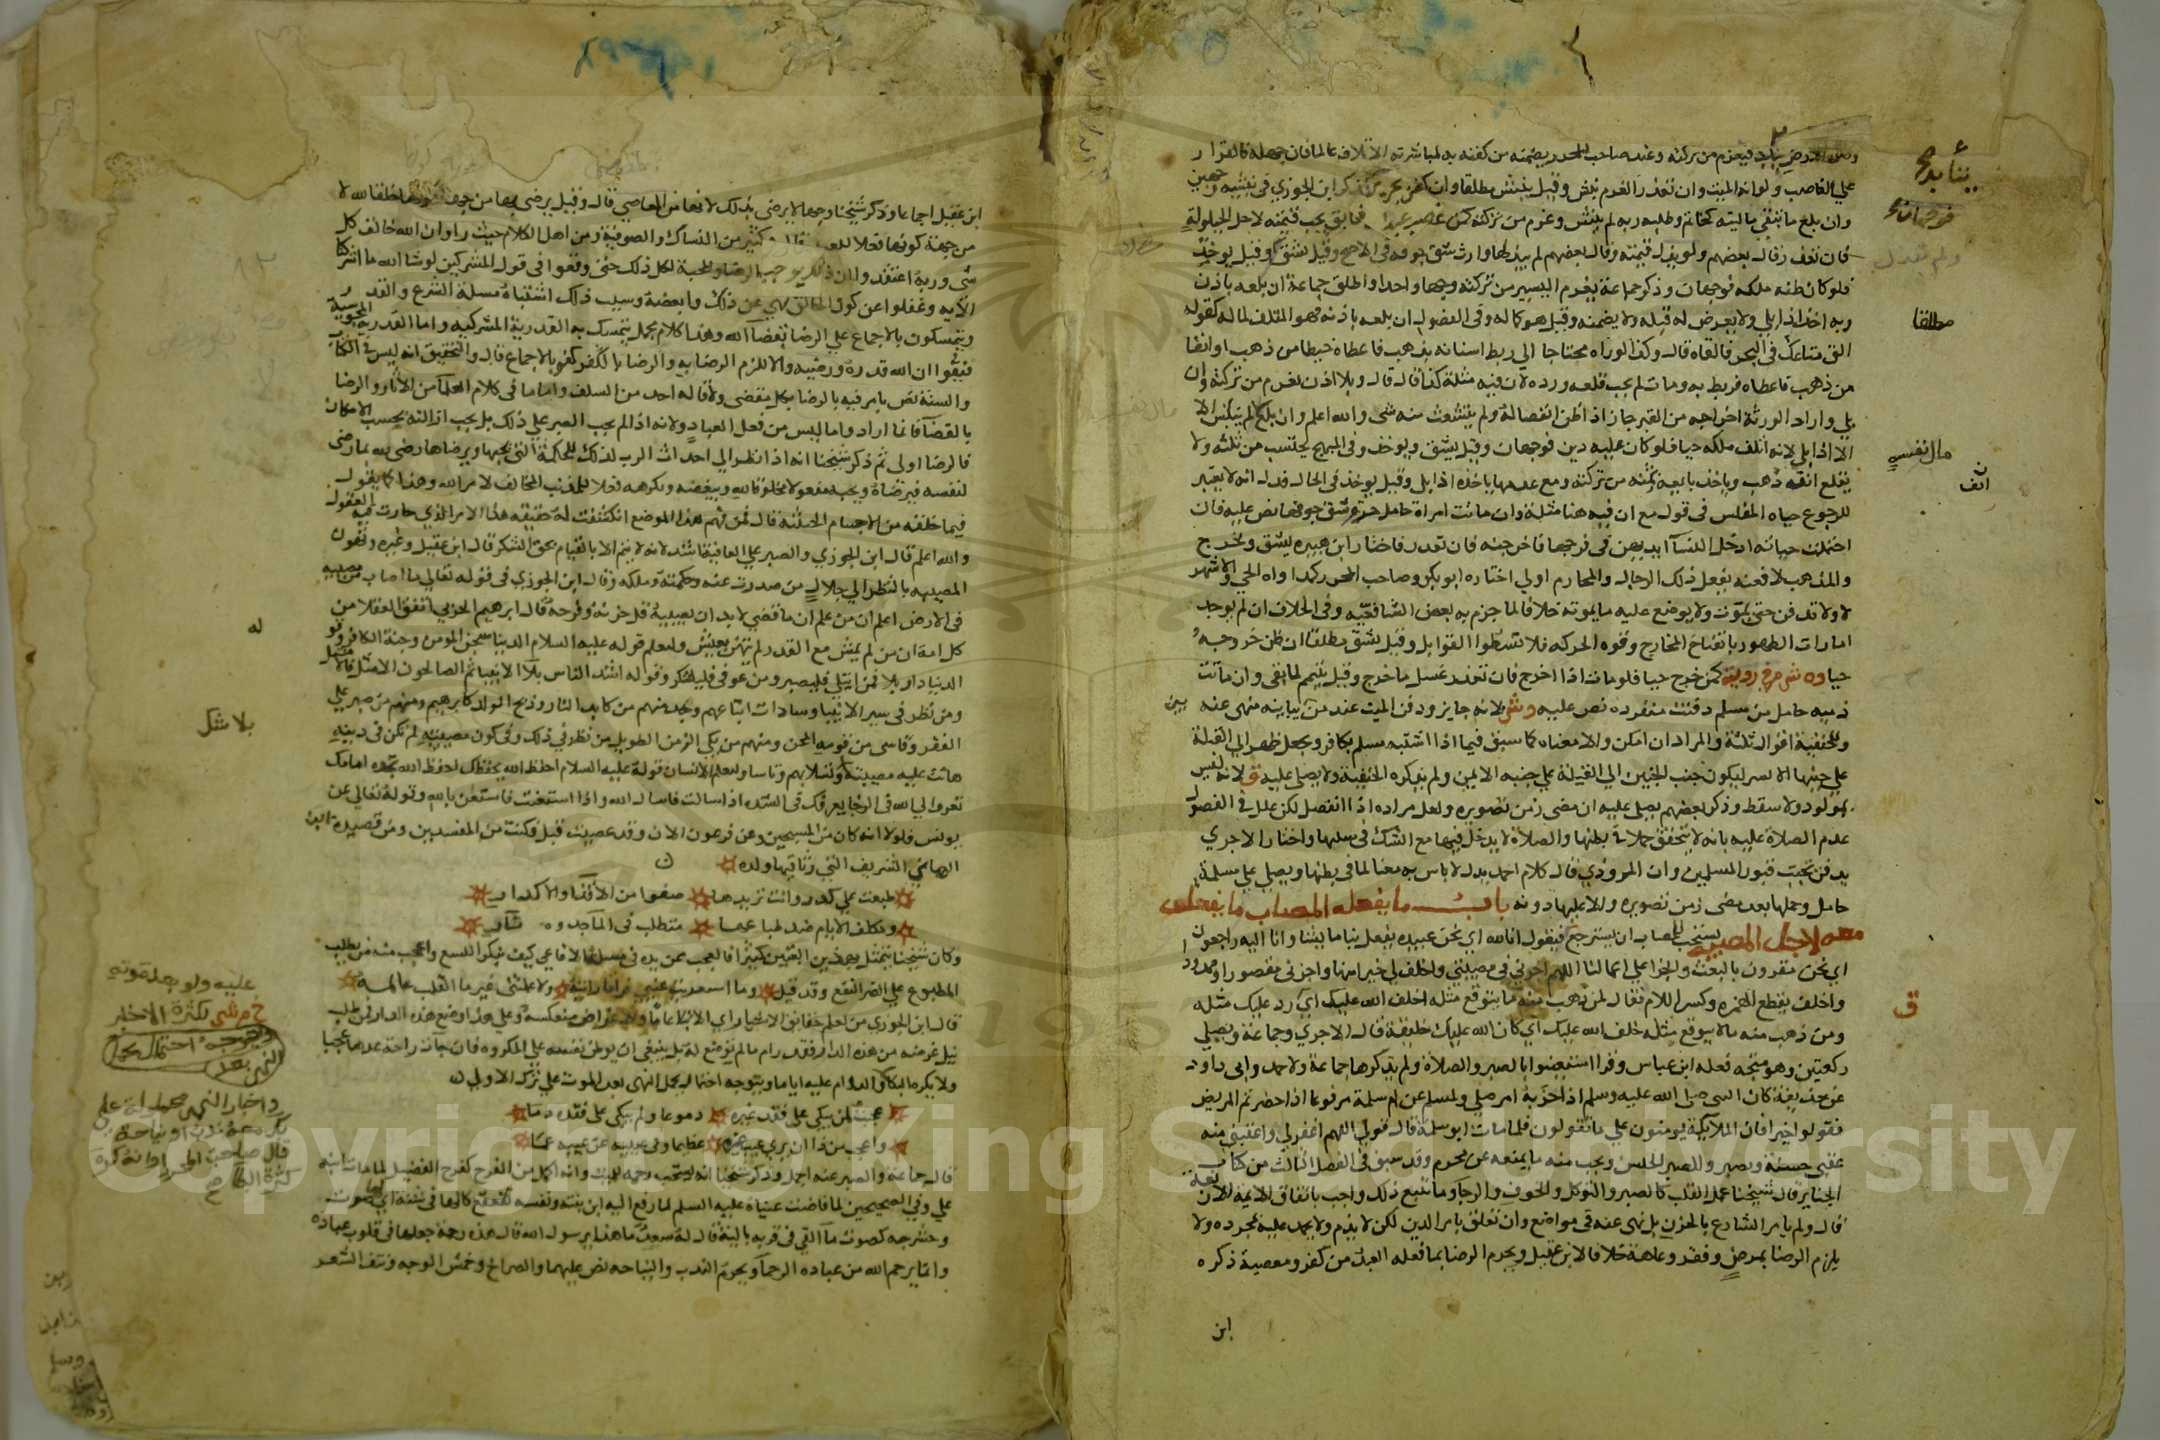 علي الغاصب ولو انه الميت وان تعذر الغرم نبش وقيل ينبش مطلقا وان كفن بحرير فذكر ابن الجوزي في نبشه وجهين
وان بلغ ما تبقي ماليته كخاتم وطلبه ربه لم ينبش وغرم من تركته كمن غصب عبدا فابق يجب قيمته لاجل الحيلولة
فان تعذر قال بعضهم ولو بذل قيمته وقال بعضهم لم يبذلها وارث شق جوفه في الاصح وقيل يشق وقيل يوخذ
فلو كان ظنه ملكه فوجهان وذكر جماعة يغرم اليسير من تركته وجها واحدا واطلق جماعة ان بلعه باذن
ربه اخذ اذا بلي ولا يعرض له قبله ولا يضمنه وقيل هو كماله وفي الفصول ان بلعه باذنه فهو المتلف لماله كقوله
الق متاعك في البحر فالقاه قال وكذا لو راه محتاجا الي ربط اسنانه بذهب فاعطاه خيطا من ذهب او انفا
من ذهب فاعطاه فربط به ومات لم يجب قلعه ورده لان فيه مثلة كذا قال قال وبلا اذن يغرم من تركته وان
بلي واراد الورثة اخراجه من القبر جاز اذا ظن انفصاله ولم ينبعث منه شي والله اعلم وان بلع لم ينبش الا
الا اذا بلي لانه اتلف ملكه حيا فلو كان عليه دين فوجهان وقيل يشق ويوخذ وفي المبهج يحتسب من ثلثه ولا
يقلع انفه ذهب وياخذ بايعه ثمنه من تركته ومع عدمها ياخذه اذا بلي وقيل يوخذ في الحال فدل انه لا يعتبر
للرجوع حياه المفلس في قول مع ان فيه هنا مثلة وان ماتت امراة حامل حرم شق جوفها نص عليه فان
احتملت حياته ادخل النسا ايديهن في فرجها فاخرجنه فان تعذر فاختار ابن هبيره يشق ويخرج
والمذهب لا فعنه يفعل ذلك الرجال والمحارم اولي اختاره ابو بكر وصاحب المحرر كمداواه الحي والاشهر
لا ولا تدفن حتي يموت ولا يوضع عليه ما يموته خلافا لما جزم به بعض الشافعيه وفي الخلاف ان لم يوجد
امارات الظهور بانفتاح المخارج وقوه الحركه فلا تسطوا القوابل وقيل يشق مطلقا ان ظن خروجه
حيا كمن خرج حيا فلو مات اذا اخرج فان تعذر غسل ما خرج وقيل تيمم لما بقي وان ماتت
ذميه حامل من مسلم دفنت منفرده نص عليه وش لانه جايز ودفن الميت عند من يباينه منهى عنه
وللحنفية اقوال ثلثة والمراد ان امكن والا معناه كما سبق فيما اذا اشتبه مسلم بكافر ويجعل ظهرها الي القبلة
علي جنبها الايسر ليكون جنب الجنين الي القبلة علي جنبه الايمن ولم يذكره الحنفية ولا يصلي عليه ق لانه ليس
بمولود ولا سقط وذكر بعضهم يصلي عليه ان مضي زمن تصويره ولعل مراده اذا انفصل لكن علل في الفصول
عدم الصلاة عليه بانه لا يتحقق حملا في بطنها والصلاة لا يدخل فيها مع الشك في سلبها واختار الاجري
يدفن بجنب قبور المسلمين وان المروذي قال كلام احمد يدل لا باس به معنا لما في بطنها ويصلي علي مسلمة
حامل وحملها بعد مضي زمن تصويره والا عليها دونه باب ما يفعله المصاب ما يفعل
معه لاجل المصيبة يستحب للمصاب ان يسترجع فيقول انا لله اي نحن عبيده يفعل بنا ما يشا وانا اليه راجعون
اي نحن مقرون بالبعث والجزا علي اعمالنا اللهم اجرني في مصيبتي واخلف لي خيرا منها واجرني مقصور او ممدود
واخلف بقطع الهمزه وكسر اللام تقال لمن ذهب منه ما يتوقع مثله اخلف الله عليك اي رد عليك مثله
ومن ذهب منه ما لا يتوقع مثله خلف الله عليك اي كان الله عليك خليفة قال الاجري وجماعة ويصلي
ركعتين وهو متجه فعله ابن عباس وقرا استعينوا بالصبر والصلاة ولم يذكرها جماعة ولاحمد وابي داود
عن حذيفة كان النبي صلي الله عليه وسلم اذا حزبه امر صلي ولمسلم عن ام سلمة مرفوعا اذا حضرتم المريض
فقولوا خيرا فان الملايكة يومنون علي ما تقولون فلما مات ابو سلمة قال قولي اللهم اغفر لي واعقبني منه
عقبي حسنة ويصبر والصبر الحبس ويجب منه ما يمنعه عن محرم وقد سبق في الفصل الثالث من كتاب
الجنايز قال شيخنا عمل القلب كالصبر والتوكل والخوف والرجا وما يتبع ذلك واجب باتفاق الايمه الاربعة
قال ولم يامر الشارع بالحزن بل نهي عنه في مواضع وان تعلق بامر الدين لكن لا يذم ولا يحمد عليه لمجرده ولا
يلزم الرضا بمرض وفقر وعاهة خلافا لابن عقيل ويحرم الرضا بما فعله العبد من كفر ومعصية ذكره
ابن
فوجهان
مطلقا
مال نفسه
انف
ق
ابن عقيل اجماعا وذكر شيخنا وجها لا يرضي بذلك لانها من المعاصي قال وقيل يرضي بها من جهة خلقا لله لا
من جهة كونها فعلا للعبد قال وكثير من النساك والصوفية ومن اهل الكلام حيث راوا ان الله خالف كل
شي وربه اعتقدوا ان ذلك يوجب الرضا والمحبة لكل ذلك حتي وقعوا في قول المشركين لو شا الله ما اشركنا
الايه وغفلوا عن كون الخالق نهي عن ذلك وابغضه وسبب ذلك اشتباه مسلة الشرع والقدر
ويتمسكون بالاجماع علي الرضا بقضا الله وهذا كلام مجمل يتمسك به القدرية المشركيه واما القدرية المجوسية
فنفوا ان الله قدره ورضيه والا للزم الرضا به والرضا بالكفر كفر بالاجماع قال والتحقيق انه ليس في الكتاب
والسنة نص بامر فيه بالرضا بكل مقضي ولا قاله احد من السلف واما ما في كلام العلما من الاثار والرضا
بالقضا فانما اراد واما ليس من فعل العباد ولانه اذا لم يجب الصبر علي ذلك بل يجب ازالته بحسب الامكان
فالرضا اولي ثم ذكر شيخنا انه اذا نظر الي احداث الرب لذلك للحكمة التي يحبها ويرضاها رضي لله بما رضي
لنفسه فيرضاه ويحبه مفعولا مخلوقا لله ويبغضه ويكرهه فعلا للمذنب المخالف لامر الله وهذا كما يقول
فيما خلقه من الاجسام الخبيثة قال فمن فهم هذا الموضع انكشفت له حقيقه هذا الامر الذي حارت فيه العقول
والله اعلم قال ابن الجوزي والصبر علي العافية اشد لانه لا يتم الا بالقيام بحق الشكر قال ابن عقيل وغيره وتهون
المصيبه بالنظر الي جلال من صدرت عنه وحكمته وملكه وقال ابن الجوزي في قوله تعالي ما اصاب من مصيبه
في الارض اعلم ان من علم ان ما قضي لا بد ان يصيبه قل حزنه وفرحه قال ابرهيم الحربي اتفق العقلا من
كل امة ان من لم يمش مع القدر لم يتهن بعيش وليعلم قوله عليه السلام الدنيا سجن المومن وجنة الكافر وقوله
الدنيا دار بلا فمن ابتلي فليصبر ومن عوفي فليشكر وقوله اشد الناس بلا الانبيا ثم الصالحون الامثل فالامثل
ومن نظر في سير الانبيا وسادات اتباعهم وجد منهم من كابد النار وذبح الولد كابرهيم ومنهم من صبر علي
الفقر وقاسي من قومه المحن ومنهم من بكي الزمن الطويل من نظر في ذلك وفي كون مصيبته لم تكن في دينه
هانت عليه مصيبته وتسلا بهم وتاسا وليعلم الانسان قوله عليه السلام احفظ الله يحفظك احفظ الله تجده امامك
تعرف الي الله في الرخا يعرفك في الشده اذا سالت فاسال الله واذا استعنت فاستعن بالله وقوله تعالي عن
يونس فلولا انه كان من المسبحين وعن فرعون الان وقد عصيت قبل وكنت من المفسدين ومن قصيدة ابي
التهامي الشريف التي رثا فيها ولده
طبعت علي كدر وانت تريدها صفوا من الاقذا والاكدار
ومكلف الايام ضد طباعها متطلب في الما جذوة نار
وكان شيخنا يتمثل بهذين البيتين كثيرا فالعجب ممن يده في مسلة الافاعي كيف ينكر اللسع واعجب منه من يطلب
المطبوع علي الضر النفع وقد قيل وما استعذبت عيني فراقا رايته ولا علمتني غير ما القلب عالمه
قال ابن الجوزي من اعلم حقايق الاختبار اي الابتلا عاما ولاغراض منعكسة وعلي هذا وضع هذه الدار فمن طلب
نيل غرضه من هذه الدار فقد رام ما لم توضع له بل ينبغي ان يوطن نفسه علي المكروه فان جات راحة عدها عجبا
ولا يكره البكا والدوام عليه اياما ويتوجه احتمال يحمل النهي بعد الموت علي تركه الاولي
عجبت لمن يبكي علي فقد غيره دموعا ولم يبكي علي فقده دما
واعجب من ذا ان يري عيب غيره عظيما وفي عينيه عن عيبه عما
قال جماعة والصبر عنه اجمل وذكر شيخنا انه يستحب رحمه للميت وانه اكمل من الفرح كفرح الفضيل لما مات ابنه
علي وفي الصحيحين لما فاضت عيناه عليه السلم لما رفع اليه ابن بنته ونفسه تقعقع كانها في شنة اي لها صوت
وحشرجه كصوت ما القي في قربه بالية قال له سعد ما هذا يرسول الله قال هذه رحمة جعلها في قلوب عباده
وانما يرحم الله من عباده الرحما ويحرم الندب والنياحه نص عليهما والصراخ وخمش الوجه ونتف الشعر
له
بلا شك
لكثرة الاخبار